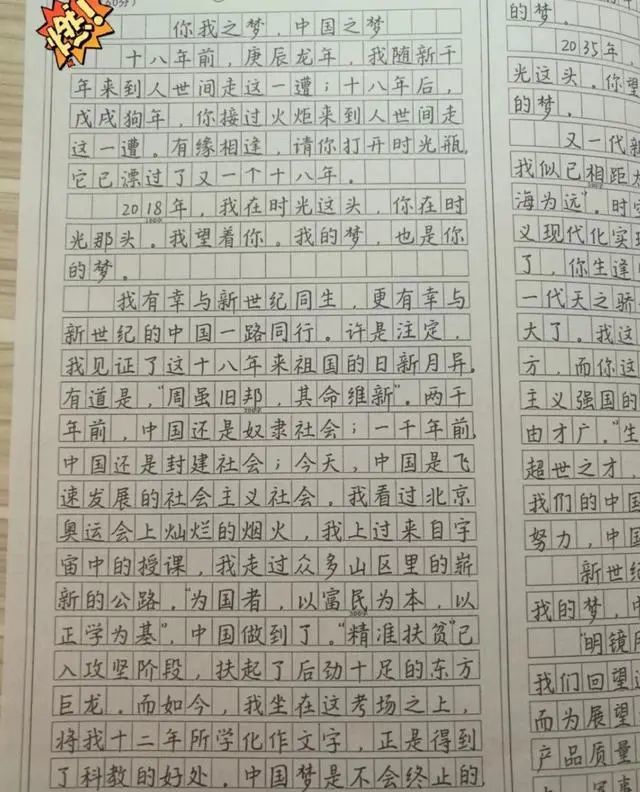 燃!
60分)
你我之梦，中国之梦
十八年前，庚辰龙年，我随新千
年来到人世间走这一遭；十八年后，
戊戌狗年，你接过火炬来到人世间走
这一遭。有缘相逢，请你打开时光瓶，
它已漂过了又一个十八年。
2018年，我在时光这头，你在时
光那头。我望着你。我的梦，也是你
的梦。
我有幸与新世纪同生，更有幸与
新世纪的中国一路同行。许是注定，
我见证了这十八年来祖国的日新月异。
有道是，“周虽旧邦，其命维新”。两千
年前，中国还是奴隶社会；一千年前，
中国还是封建社会；今天，中国是飞
速发展的社会主义社会。我看过北京
奥运会上灿烂的烟火，我上过来自宇
宙中的授课，我走过众多山区里的崭
新的公路。“为国者，以富民为本，以
正学为基”，中国做到了。“精准扶贫”已
入攻坚阶段，扶起了后劲十足的东方
巨龙。而如今，我坐在这考场之上，
将我十二年所学化作文字，正是得到
了科教的好处。中国梦是不会终止的，
的梦。
2035年，
光这头。你望
的梦。
又一代新
我似已相距
海为远”。时
义现代化实现
了，你生逢
一代天之骄
大了。我这
方，而你这
主义强国的
由才广。“生
超世之才，
我们的中国
努力，中国
新世纪
我的梦，中
“明镜所
我们回望
而为展望
产品质量